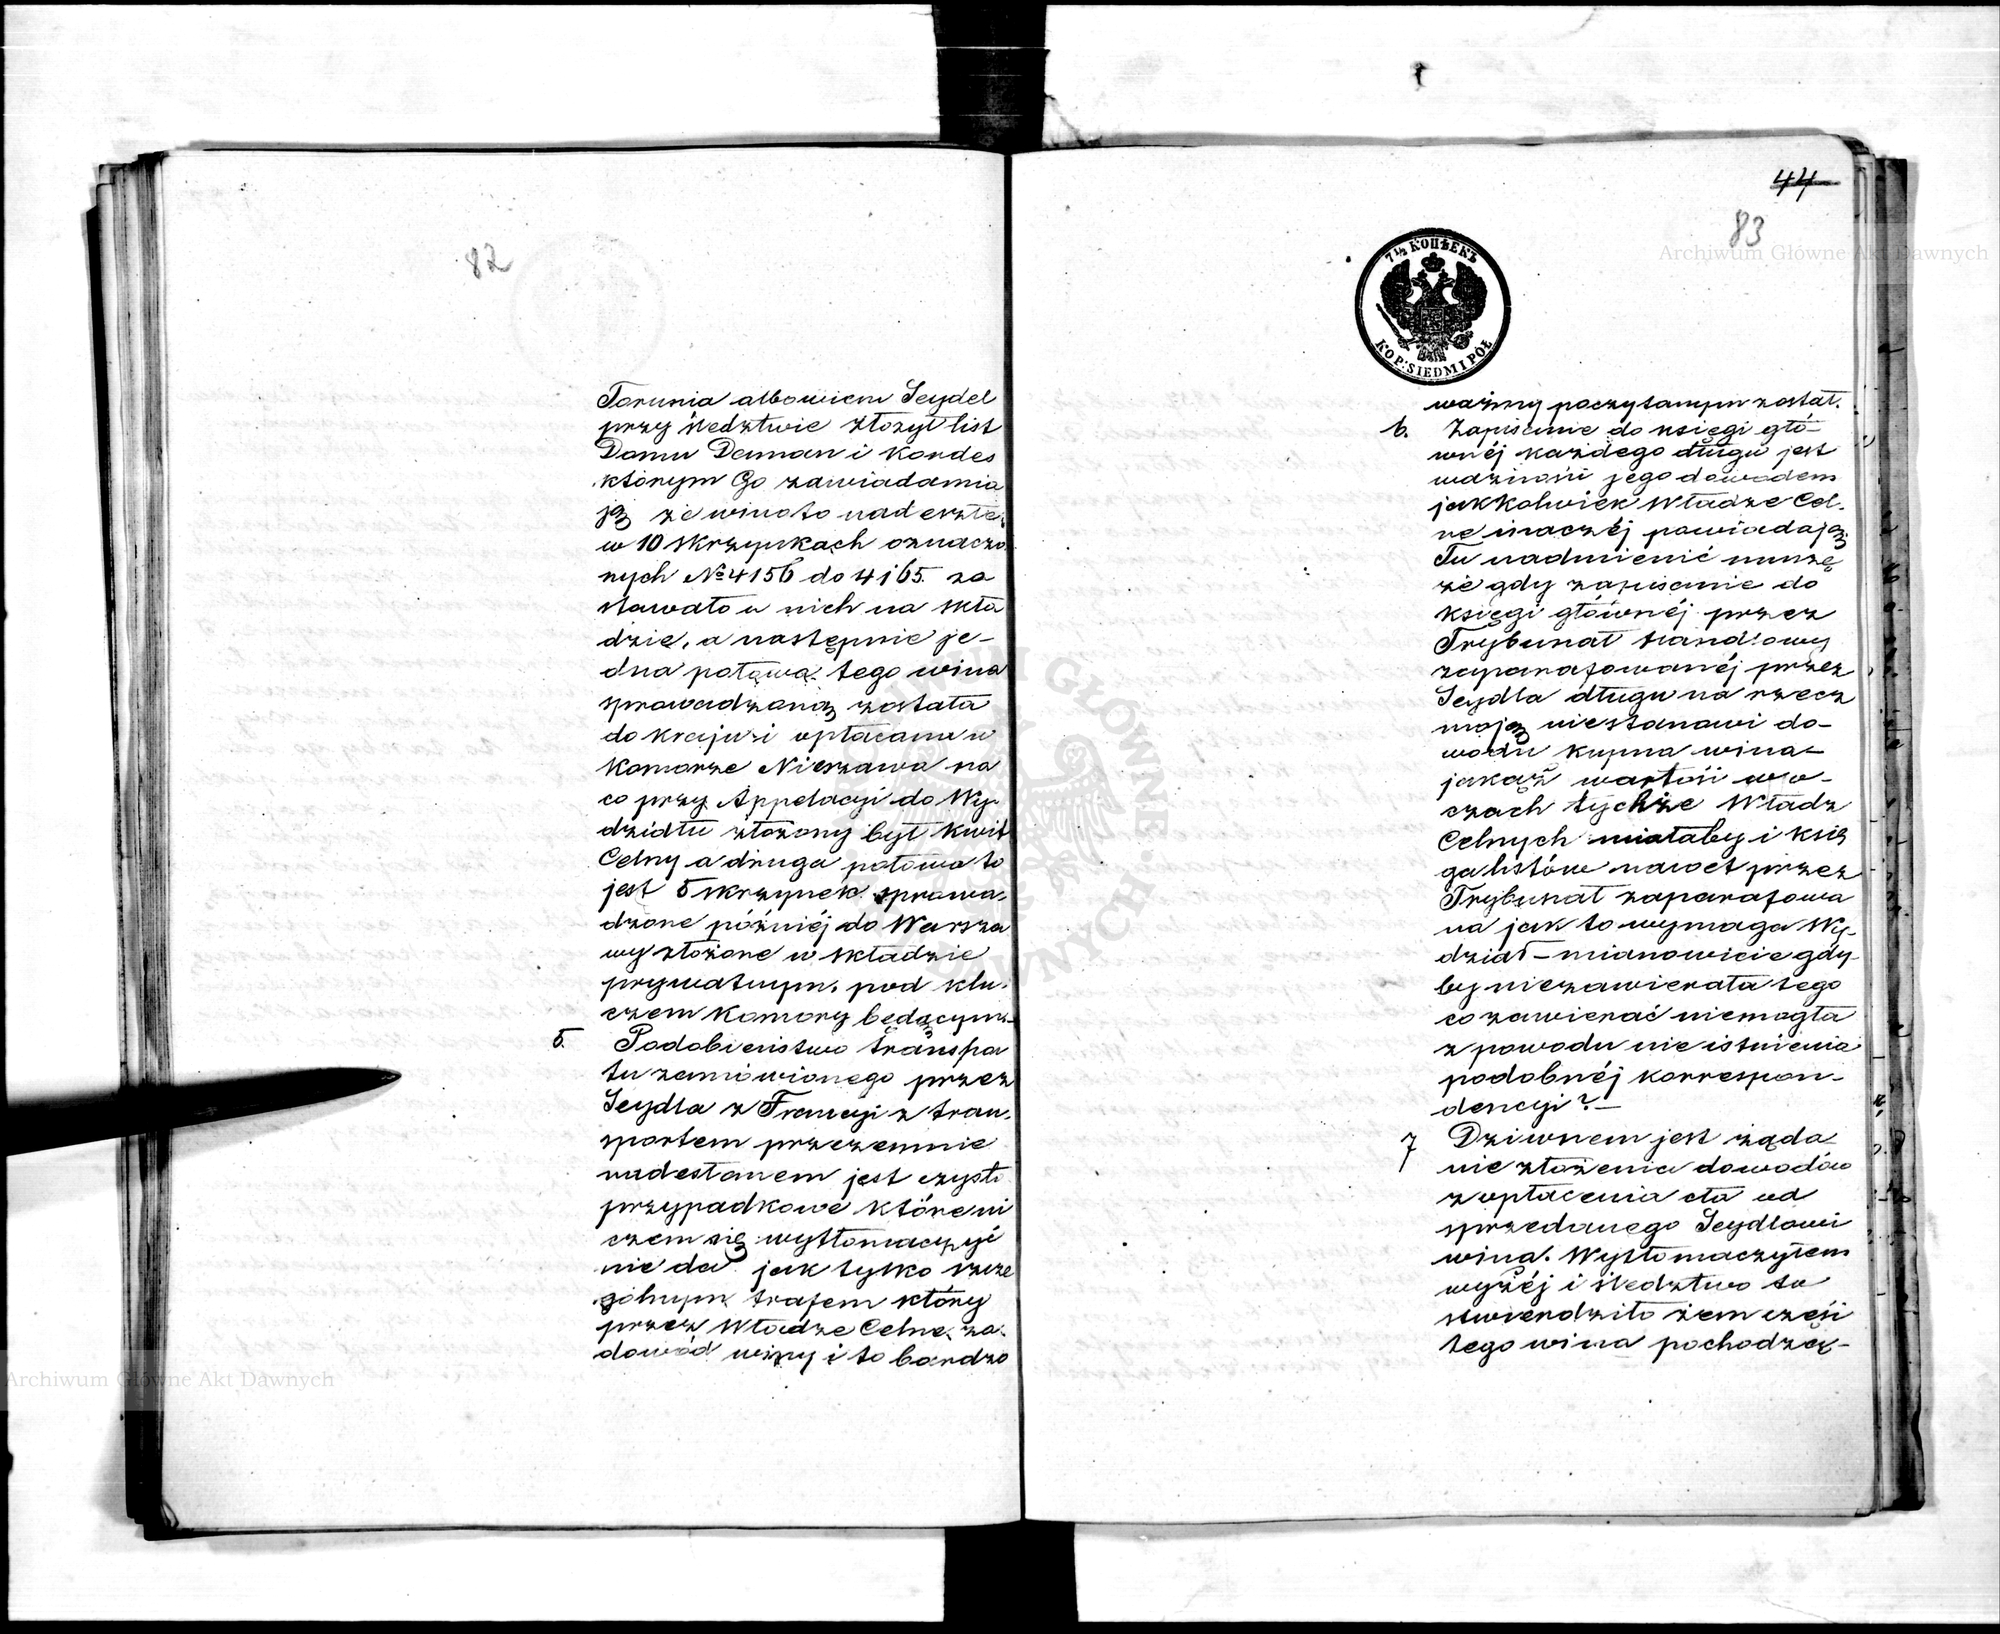 82
Torunia albowiem Seydel
przy śledztwie złożył list
Domu Daman i Kordes
którym Go zawiadamia
ją że wino to nadeszłe
w 10 skrzynkach oznaczo
nych № 4156 do 4165. zo
stawało u nich na skła
dzie, a następnie je-
dna połowa tego wina
sprowadzoną została
do kraju i opłacana w
Komorze Nieszawa na
co przy Appelacyi do Wy-
działu złożony był kwit
Celny a druga połowa to
jest 5 skrzynek sprowa-
dzone później do Warsza
wy złożone w składzie
prywatnym, pod klu-
czem Komory będącym.
5. Podobieństwo transpo
tu zamówionego przez
Seydla z Francyi z tran-
sportem przezemnie
nadesłanem jest czysto
przypadkowe które ni
czem się wytłomaczyć
nie da jak tylko szcze
gólnym trafem który
przez Władze Celne za
dowód winy i to bardzo
44
83
7½ КОПѢЕКЪ
KOP: SIEDMI PÓŁ
ważny poczytanym został.
6. Zapisanie do księgi głó-
wnéj każdego długu jest
ważności jego dowodem
jakkolwiek Władze Cel-
ne inaczéj powiadają
Tu nadmienić muszę
że gdy zapisanie do
księgi głównéj przez
Trybunał handlowy
zaparafowanéj przez
Seydla długu na rzecz
moją niestanowi do-
wodu kupna wina-
jakąż wartość w o-
czach tychże Władz
Celnych miałaby i ksią
ga listów nawet przez
Trybunał zaparafowa
na jak to wymaga Wy-
dział – mianowicie gdy-
by niezawierała tego
co zawierać niemogła
z powodu nie istnienia
podobnéj korrespon-
dencyi? –
7 Dziwnem jest żąda
nie złożenia dowodów
z opłacenia cła od
sprzedanego Seydlowi
wina. Wytłomaczyłem
wyżéj i śledztwo to
stwierdziło żem części
tego wina pochodzą-
Archiwum Główne Akt Dawnych
Archiwum Główne Akt Dawnych